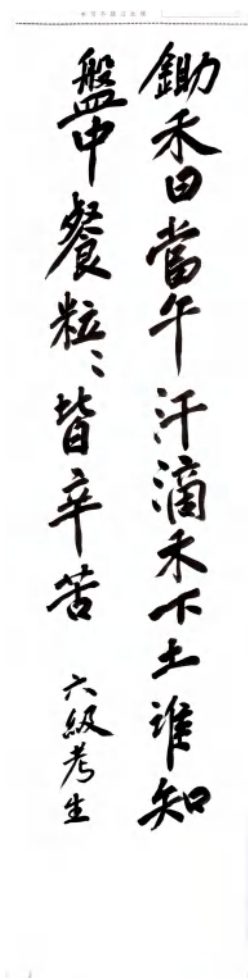 鋤禾日當午汗滴禾下土誰知
盤中餐粒〻皆辛苦
六級考生